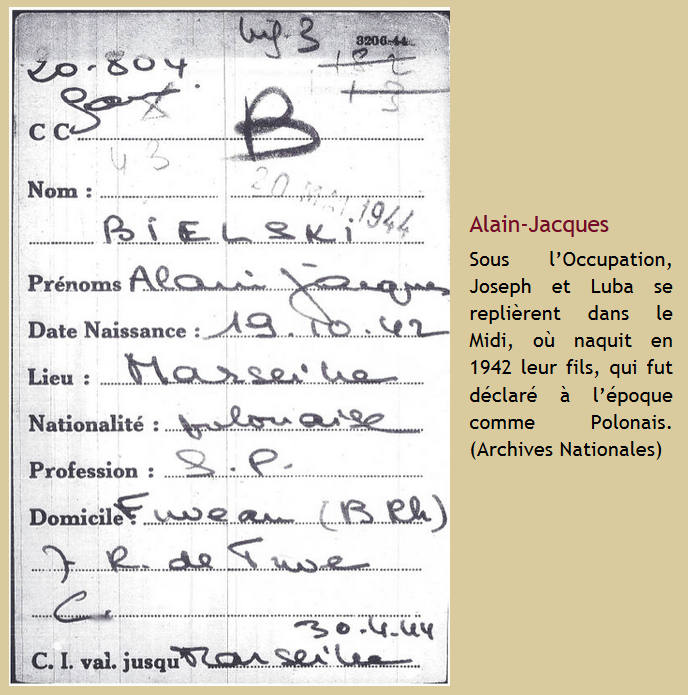 3206-44
20.804
C C
B
43
Nom :
20 MAI 1944
BIELSKI
Prénoms Alain Jacques
Date Naissance : 19.10.42
Lieu : Marseille
Nationalité : polonaise
Profession : S.P.
Domicile : Fuveau (B Rh)
7 R. de
C.
30.4.44
C. I. val. jusqu Marseille
Alain-Jacques
Sous l’Occupation,
Joseph et Luba se
replièrent dans le
Midi, où naquit en
1942 leur fils, qui fut
déclaré à l’époque
comme Polonais.
(Archives Nationales)